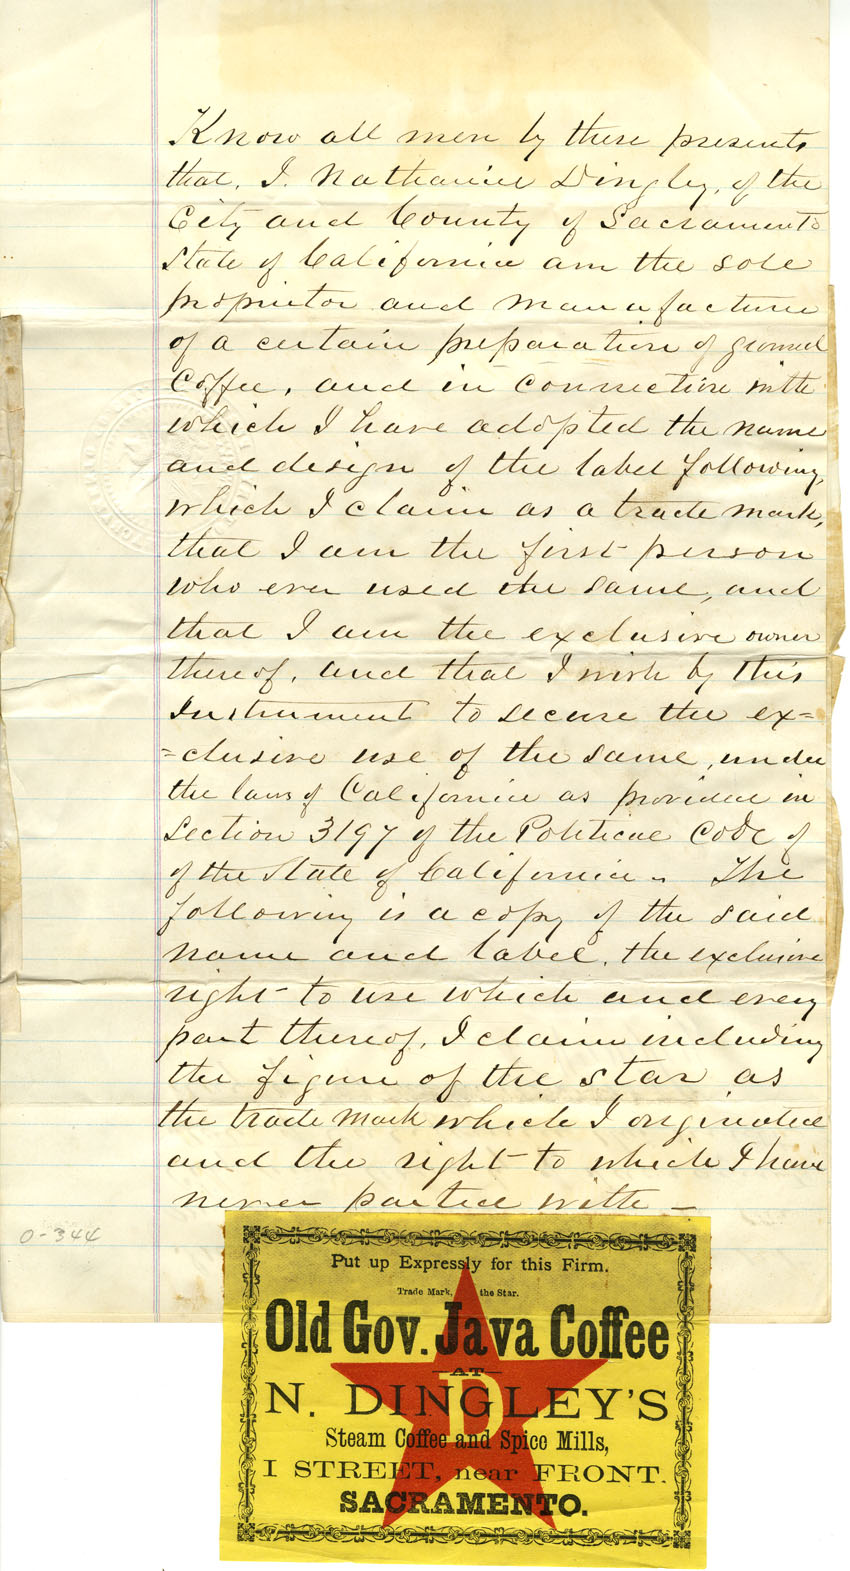 Know all men by these presents
that, I. Nathaniel Dingley, of the
City and County of Sacramento
State of California am the sole
proprietor and manufacturer
of a certain preparation of ground
Coffee, and in connection with
which I have adopted the name
and design of the label following,
which I claim as a trade mark,
that I am the first person
who ever used the same, and
that I am the exclusive owner
thereof, and that I wish by this
Instrument to secure the ex=
=clusive use of the same, under
the laws of California as provided in
Section 3197 of the Political Code of
of the State of California. The
following is a copy of the said
name and label, the exclusive
right to use which and every
part thereof, I claim including
the figure of the star as
the trade mark which I originated
and the right to which I have
never parted with —
0-344
Put up Expressly for this Firm.
Trade Mark, the Star.
Old Gov. Java Coffee
—AT—
D
N. DINGLEY'S
Steam Coffee and Spice Mills,
I STREET, near FRONT.
SACRAMENTO.